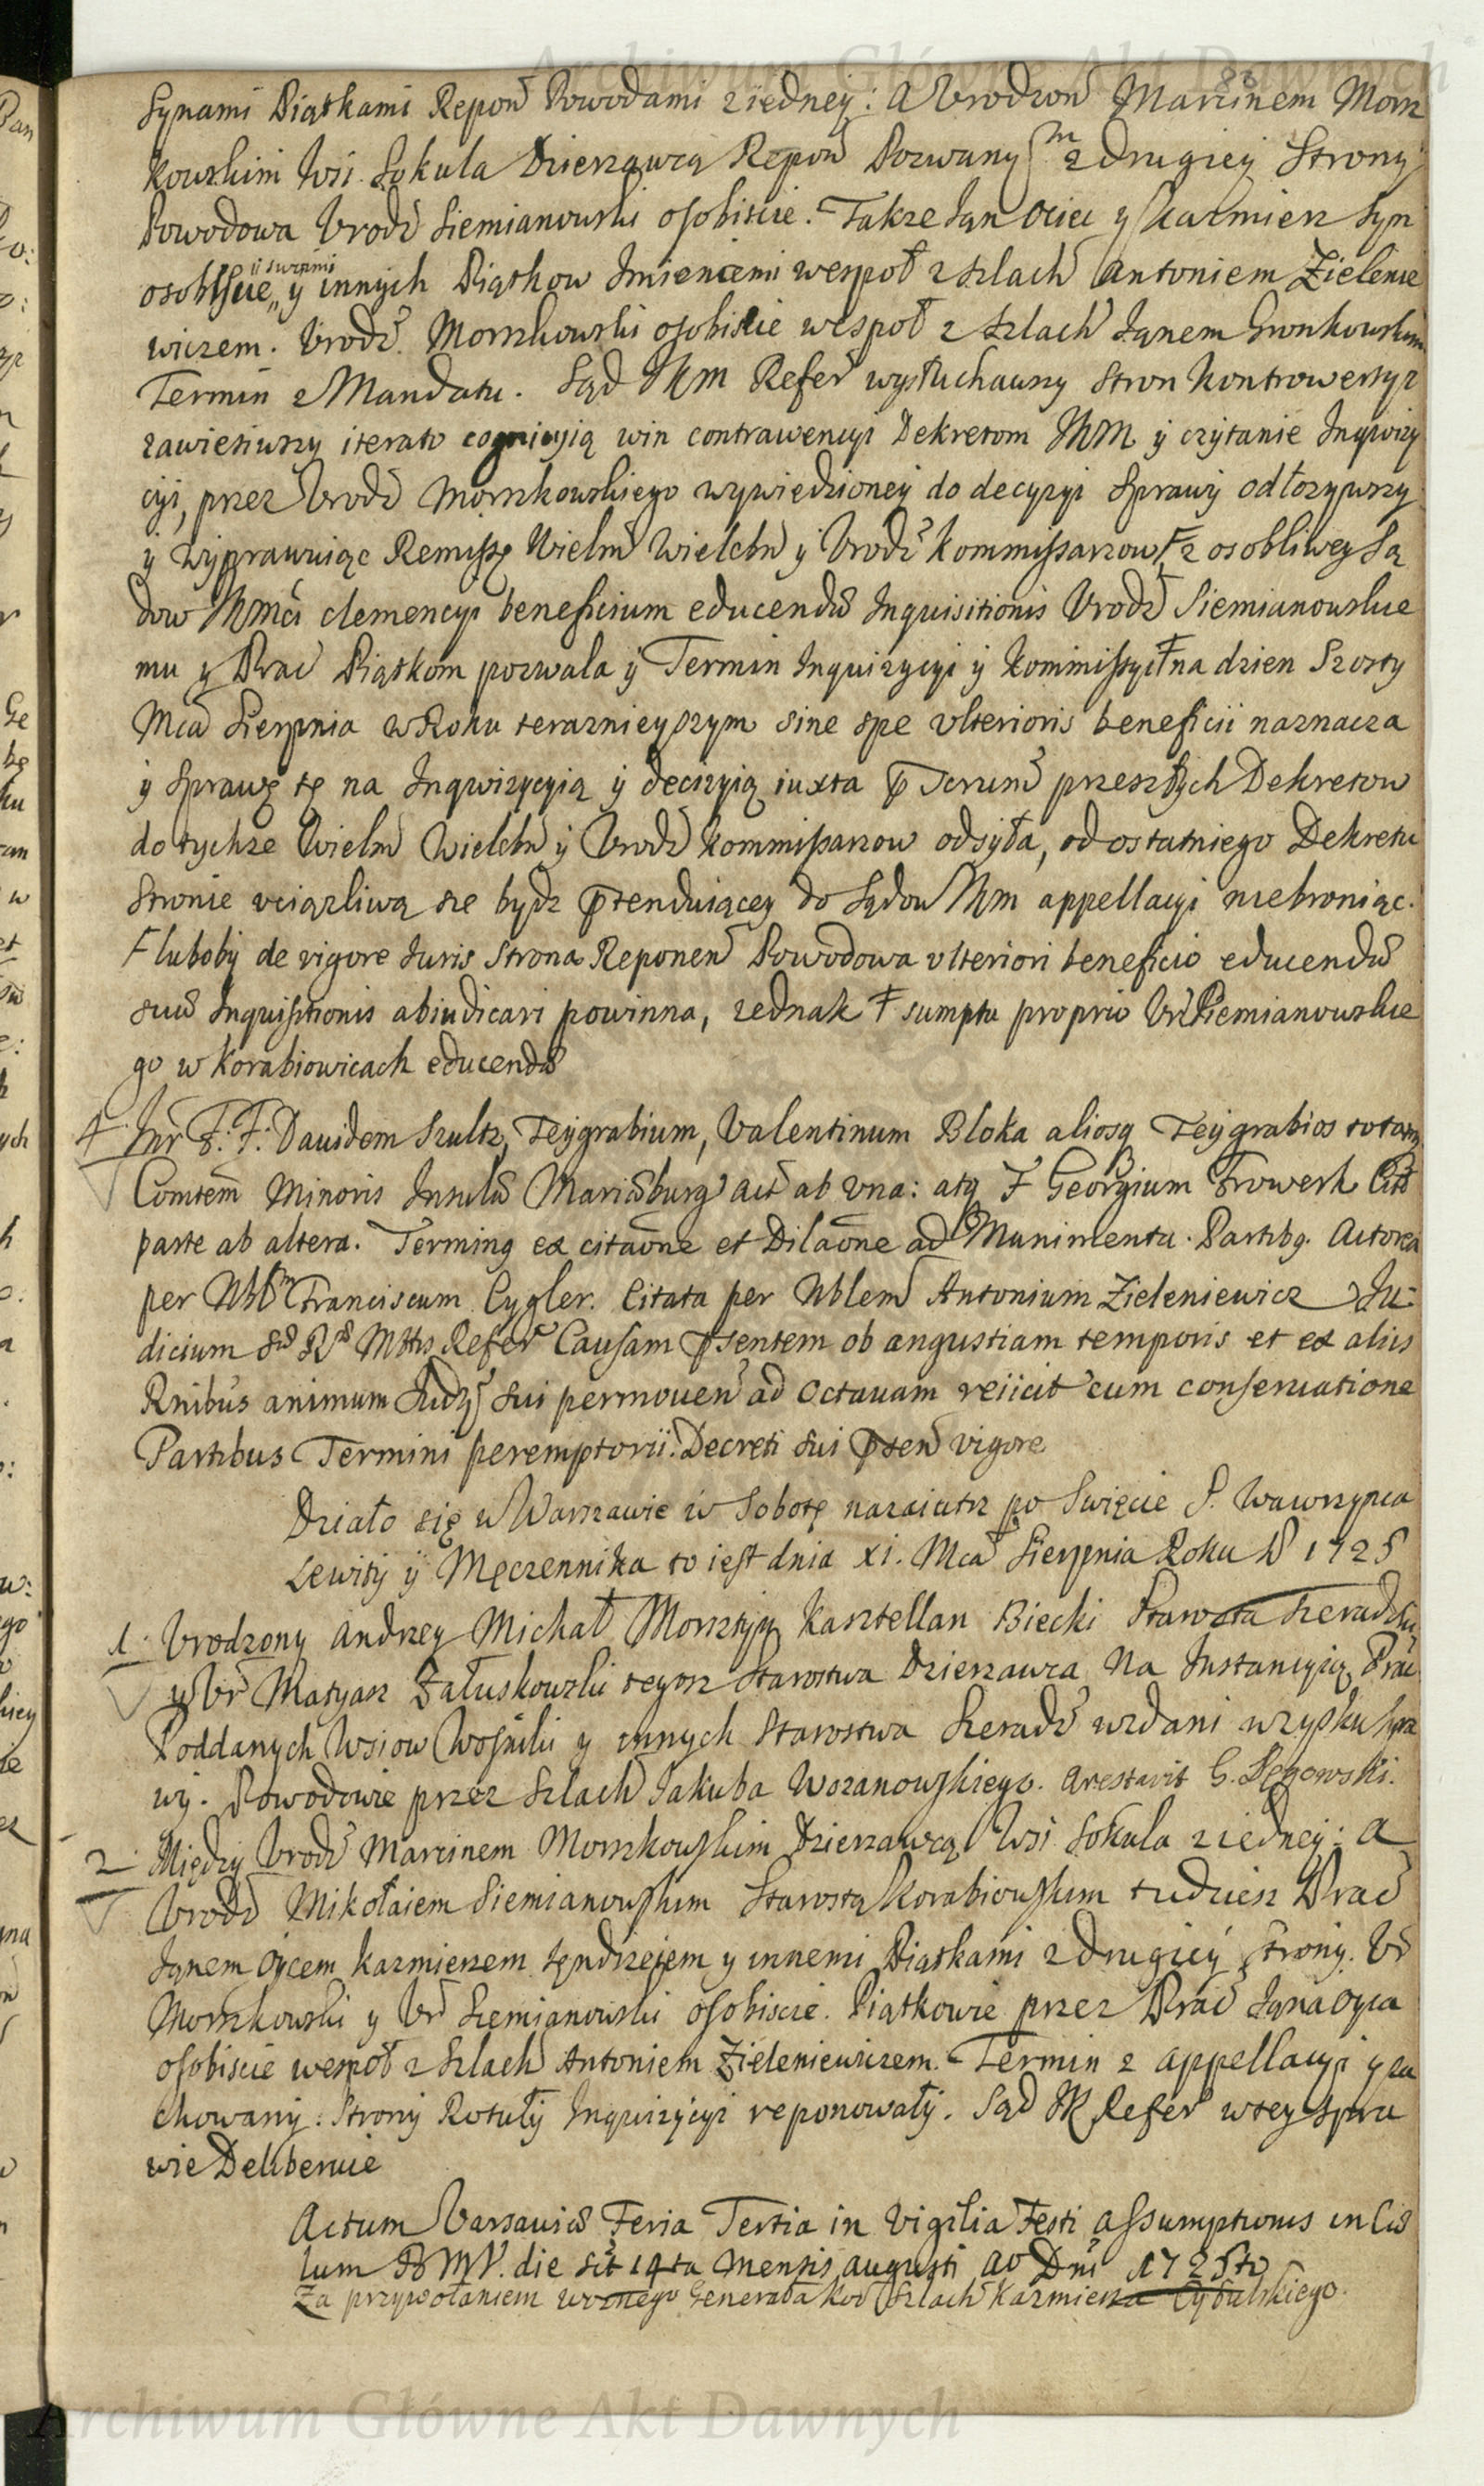 Archiwum Główne Akt Dawnych
86
Synami Piątkami Repon Powodami ziedney: A Vrodzon Marcinem Morz
kowskim Wsi Sokula Dzierzawcą Repon Pozwany m z drugiey Strony
Powodowa Vrodz Siemianowski osobiscie. Takze Jąn Ociec y Kazmierz Syn
osobiscie, y swęmi y innych Piątkow Jmieniemi wespoł z Szlach Antoniem Zielenie
wiczem. Vrodz. Morzkowski osobiscie wespoł z Szlach Jąnem Gronkowskim
Termin z Mandatu. Sąd JKM Refer wysłuchawszy Stron kontrowersyi z
zawiesiwszy iterato cognicyią win contrawencyi Dekretom JKM y czytanie Inqwizy
cyi, przez Vrodz Morzkowskiego wywiedzioney do decyzyi Sprawy odłozywszy
y wyprawuiąc Remissę Wielm Wielebn y Vrodz Kommissarzow F z osobliwey Są
dow JKMci clemencyi beneficium educendæ Inquisitionis Vrodz Siemianowskie
mu y Prac Piątkom pozwala y Termin Inquizycyi y Kommissyi Ŧ na dzien Szosty
Mca Sierpnia w Roku teraznieyszym sine spe vlterioris beneficii naznacza
y Sprawę tę na Inqwizycyią y decizyią iuxta p Serum przeszłych Dekretow
do tychze Wielm Wielebn y Vrodz Kommissarzow odsyła, od ostatniego Dekretu
Stronie vciązliwą się bydz ptenduiącey do Sądow JKM appellacyi niebroniąc.
F luboby de vigore Juris Strona Reponen Powodowa vlteriori beneficio educendæ
suæ Inquisitionis abiudicari powinna, iednak Ŧ sumptu proprio Vr Siemianowskie
go w Korabiowicach educendæ
4 Inr F. F. Davidem Szultz, Teygrabium, Valentinum Bloka aliosq Teygrabios totam
Comtem Minoris Insulæ Mariæburg Act ab vna: atq F Georgium Frowerk Citt
parte ab altera. Terming ex citaone et Dilaone ad Munimenta. Partibg. Actorea
per Nblm Franciscum Cygler. Citata per Nblem Antonium Zieleniewicz Ju
dicium Sæ Ræ Mttis Refer Causam psentem ob angustiam temporis et ex aliis
Rnibus animum Judz sui permouen ad Octavam reiicit cum conseruatione
Partibus Termini peremptorii. Decreti sui psen vigore
Działo się w Warszawie w Sobotę nazaiutrz po Swięcie S. Wawrzynca
Lewity y Męczennika to iest dnia XI. Mca Sierpnia Roku D 1725
1. Vrodzony Andrzey Michał Morsztyn Kasztellan Biecki Starosta Sieradzki
y Vr Matyasz Załuskowski tegosz Starostwa Dzierzawca Na Instancyią Prac
Poddanych Wsiow Woszniki y innych Starostwa Sieradz wzdani wzysku Spra
wy. Powodowie przez Szlach Jakuba Wozanowskiego. Arestavit G. Pęgowski.
2 Między Vrodz Marcinem Morzkowskim Dzierzawcą Wsi Sokula ziedney: a
Vrodz Mikołaiem Siemianowskim Starostą Korabiowskim tudziesz Prac
Jąnem Oycem Kazmierzem Jędrzejem y innemi Piątkami z drugiey strony. Vr
Morzkowski y Vr Siemianowski osobiscie. Piątkowie przez Prac Jąna Oyca
osobiscie wespoł z Szlach Antoniem Zieleniewiczem. Termin z appellacyi y za
chowany: Strony Rotuły Inquizycyi reponowały. Sąd JK Refer w tey Spra
wie Deliberuie
Actum Varsaviæ Feria Tertia in Vigilia Festi Assumptionis in Cæ
lum BMV. die sct 14ta Mensis Augusti Ao Dni 1725to
Za przywołaniem woznego Generała Kor Szlach Kazmierza Cybulskiego.
Archiwum Główne Akt Dawnych